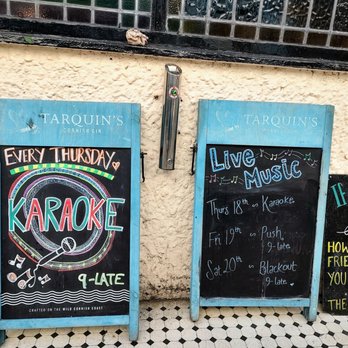 TARQUIN'S
CORNISH GIN
EVERY THURSDAY
KARAOKE
9-LATE
CRAFTED ON THE WILD CORNISH COAST
TARQUIN'S
CORNISH GIN
Live
Music
Thurs 18th ~ Karaoke
Fri 19th ~ Push
9-late
Sat 20th ~ Blackout
9-late
IF
HOW
FRIE
YOU
THE